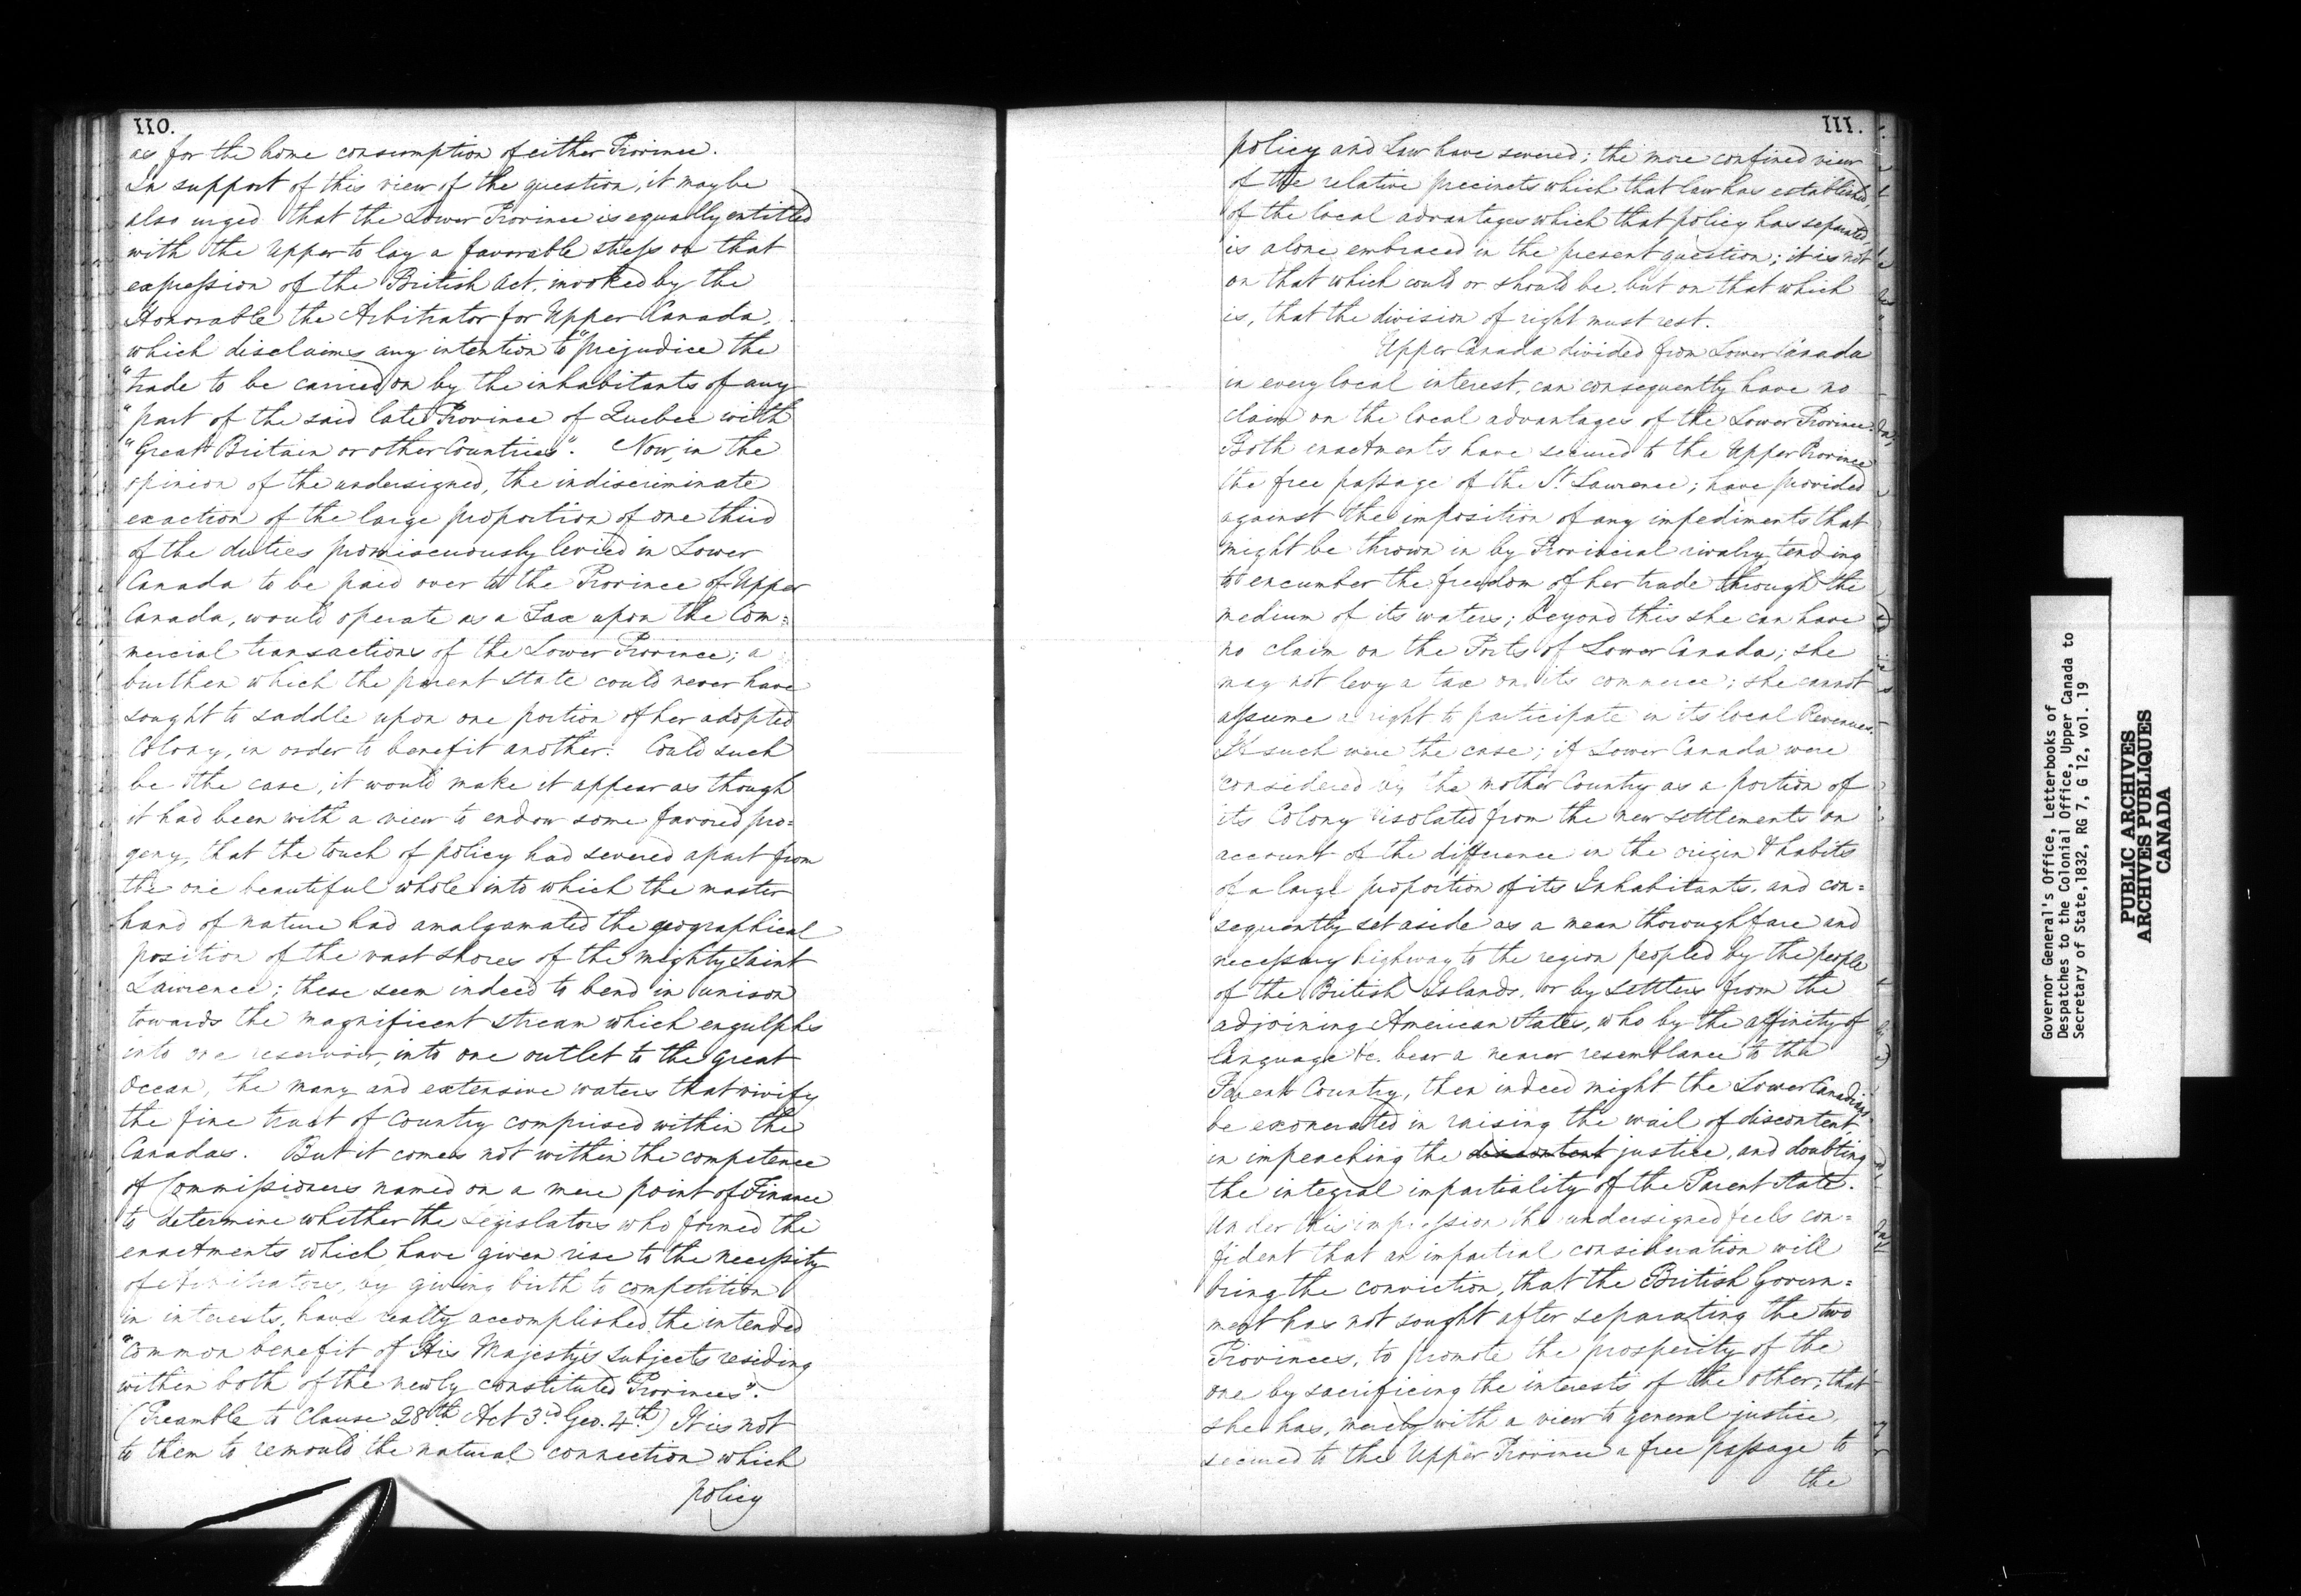 110.
as for the home consumption of either Province.
In support of this view of the question, it may be
also urged that the Lower Province is equally entitled
with the Upper to lay a favorable stress on that
expression of the British Act, invoked by the
Honorable the Arbitrator for Upper Canada,
which disclaims any intention to "prejudice the
"trade to be carried on by the inhabitants of any
"part of the said late Province of Quebec with
"Great Britain or other Countries". Now, in the
opinion of the undersigned, the indiscriminate
exaction of the large proportion of one third
of the duties promiscuously levied in Lower
Canada to be paid over to the Province of Upper
Canada, would operate as a Tax upon the Com=
mercial transactions of the Lower Province; a
burthen which the parent state could never have
sought to saddle upon one portion of her adopted
Colony, in order to benefit another. Could such
be the case, it would make it appear as though
it had been with a view to endow some favored pro=
geny, that the touch of policy had severed apart from
the one beautiful whole into which the master
hand of nature had amalgamated the geographical
position of the vast shores of the mighty Saint
Lawrence; these seem indeed to bend in unison
towards the magnificent stream which engulphs
into one reservoir, into one outlet to the great
Ocean, the many and extensive waters that vivify
the fine tract of Country comprised within the
Canadas. But it comes not within the competence
of Commissioners named on a mere point of Finance
to determine whether the Legislators who formed the
enactments which have given rise to the necessity
of Arbitrators, by giving birth to competition
in interests, have really accomplished the intended
"Common benefit of His Majesty's subjects residing
within both of the newly constituted Provinces".
(Preamble to Clause 28th Act 3rd Geo. 4th) It is not
to them to remould the natural connection which
policy
111.
policy and Law have severed; the more confined view
of the relative precincts which that law has established
of the local advantages which that policy has separated,
is alone embraced in the present question; it is not
on that which could or should be, but on that which
is, that the division of right must rest.
Upper Canada divided from Lower Canada
in every local interest, can consequently have no
claim on the local advantages of the Lower Province.
Both enactments have secured to the Upper Province
the free passage of the St. Lawrence; have provided
against the imposition of any impediments that
might be thrown in by Provincial rivalry tending
to encumber the freedom of her trade through the
medium of its waters; beyond this she can have
no claim on the Ports of Lower Canada; she
may not levy a tax on its commerce; she cannot
assume a right to participate in its local Revenues.
If such were the case; if Lower Canada were
considered by the mother Country as a portion of
its Colony isolated from the new settlements on
account of the difference in the origin & habits
of a large proportion of its Inhabitants, and con=
sequently set aside as a mean thoroughfare and
necessary highway to the region peopled by the people
of the British Islands, or by settlers from the
adjoining American States, who by the affinity of
language &c. bear a nearer resemblance to the
Parent Country, then indeed might the Lower Canadians
be exonerated in raising the wail of discontent,
in impeaching the discontent justice, and doubting
the integral impartiality of the Parent State.
Under this impression the undersigned feels con=
fident that an impartial consideration will
bring the conviction, that the British Govern=
ment has not sought after separating the two
Provinces, to promote the prosperity of the
one by sacrificing the interests of the other; that
she has, merely with a view to general justice,
secured to the Upper Province a free passage to
the
Governor General's Office, Letterbooks of
Despatches to the Colonial Office, Upper Canada to
Secretary of State,1832, RG 7, G 12, vol. 19
PUBLIC ARCHIVES
ARCHIVES PUBLIQUES
CANADA